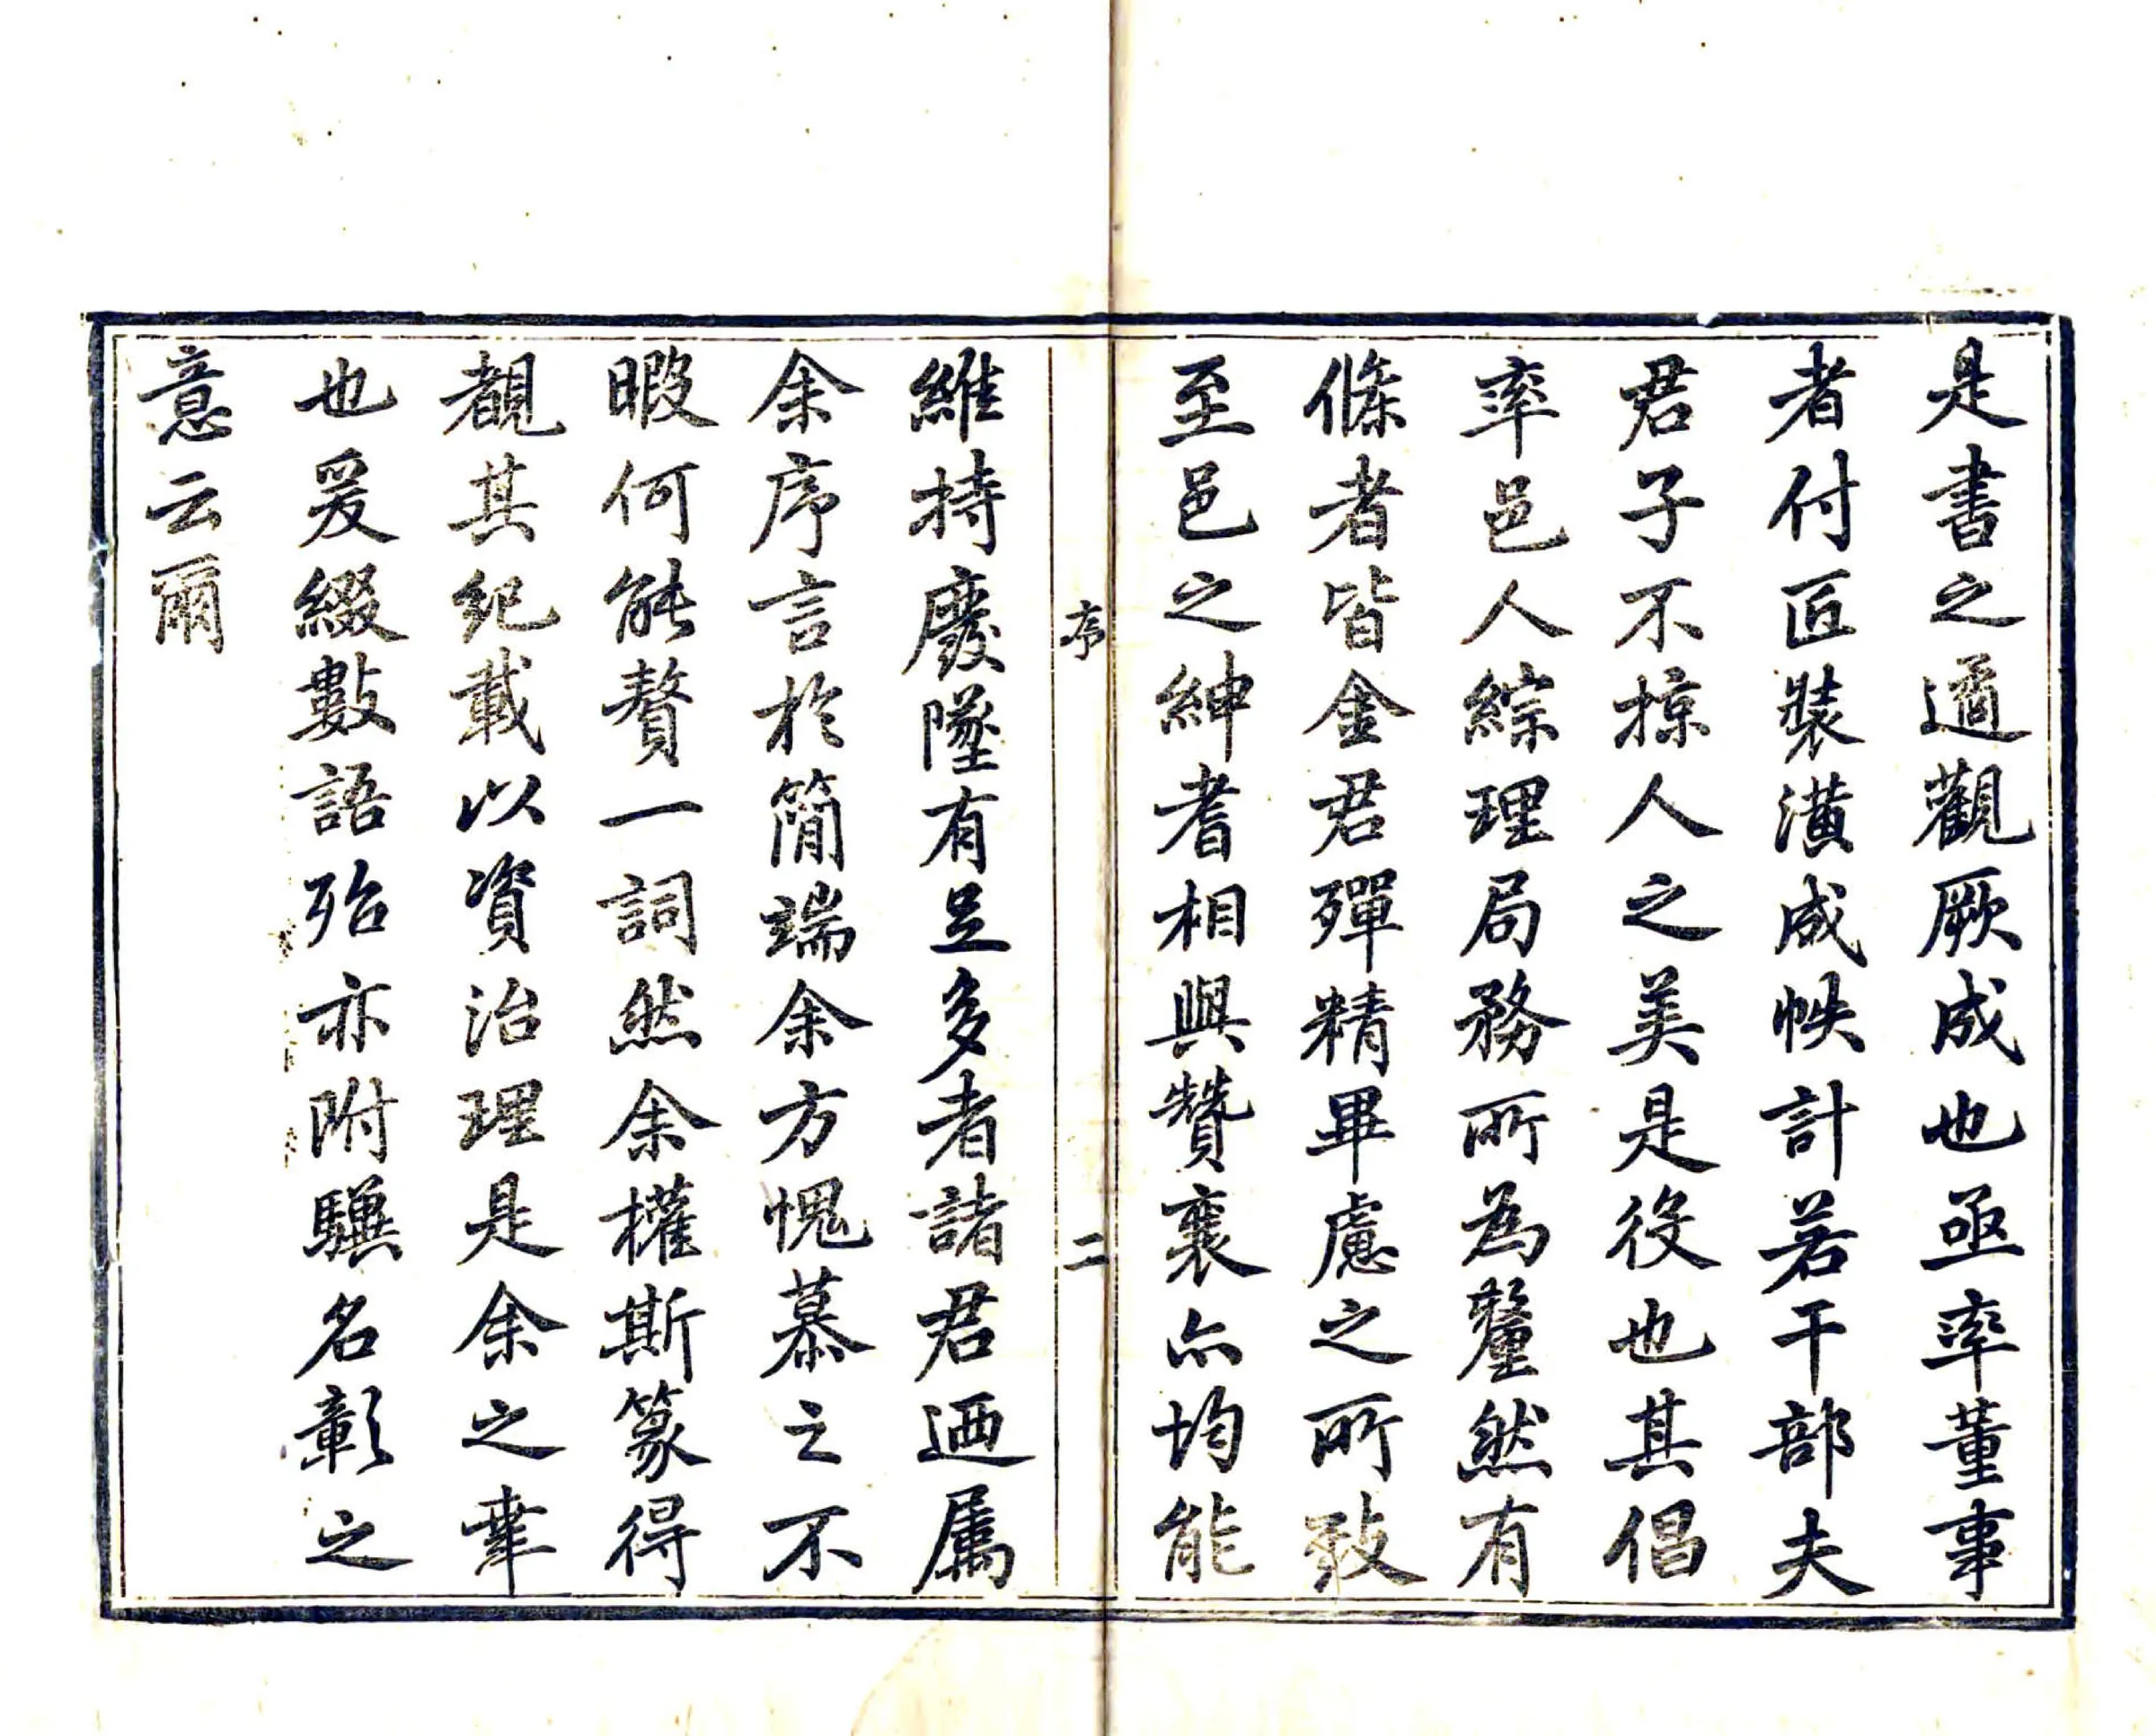 是書之遹觀厥成也亟率董事
者付匠裝潢成帙計若干部夫
君子不掠人之美是役也其倡
率邑人綜理局務所為釐然有
條者皆金君殫精畢慮之所致
至邑之紳耆相與贊襄亦均能
序
二
維持廢墜有足多者諸君迺屬
余序言於簡端余方愧慕之不
暇何能贅一詞然余權斯篆得
覩其紀載以資治理是余之幸
也爰綴數語殆亦附驥名彰之
意云爾